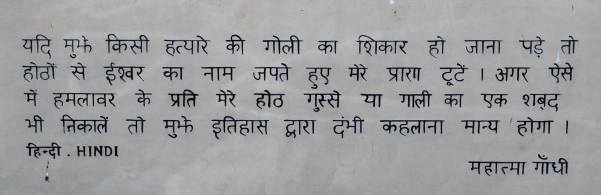 यदि मुझे किसी हत्यारे की गोली का शिकार हो जाना पड़े तो
होठों से ईश्वर का नाम जपते हुए मेरे प्राण टूटें । अगर ऐसे
में हमलावर के प्रति मेरे होठ गुस्से या गाली का एक शब्द
भी निकालें तो मुझे इतिहास द्वारा दंभी कहलाना मान्य होगा ।
हिन्दी . HINDI
महात्मा गाँधी